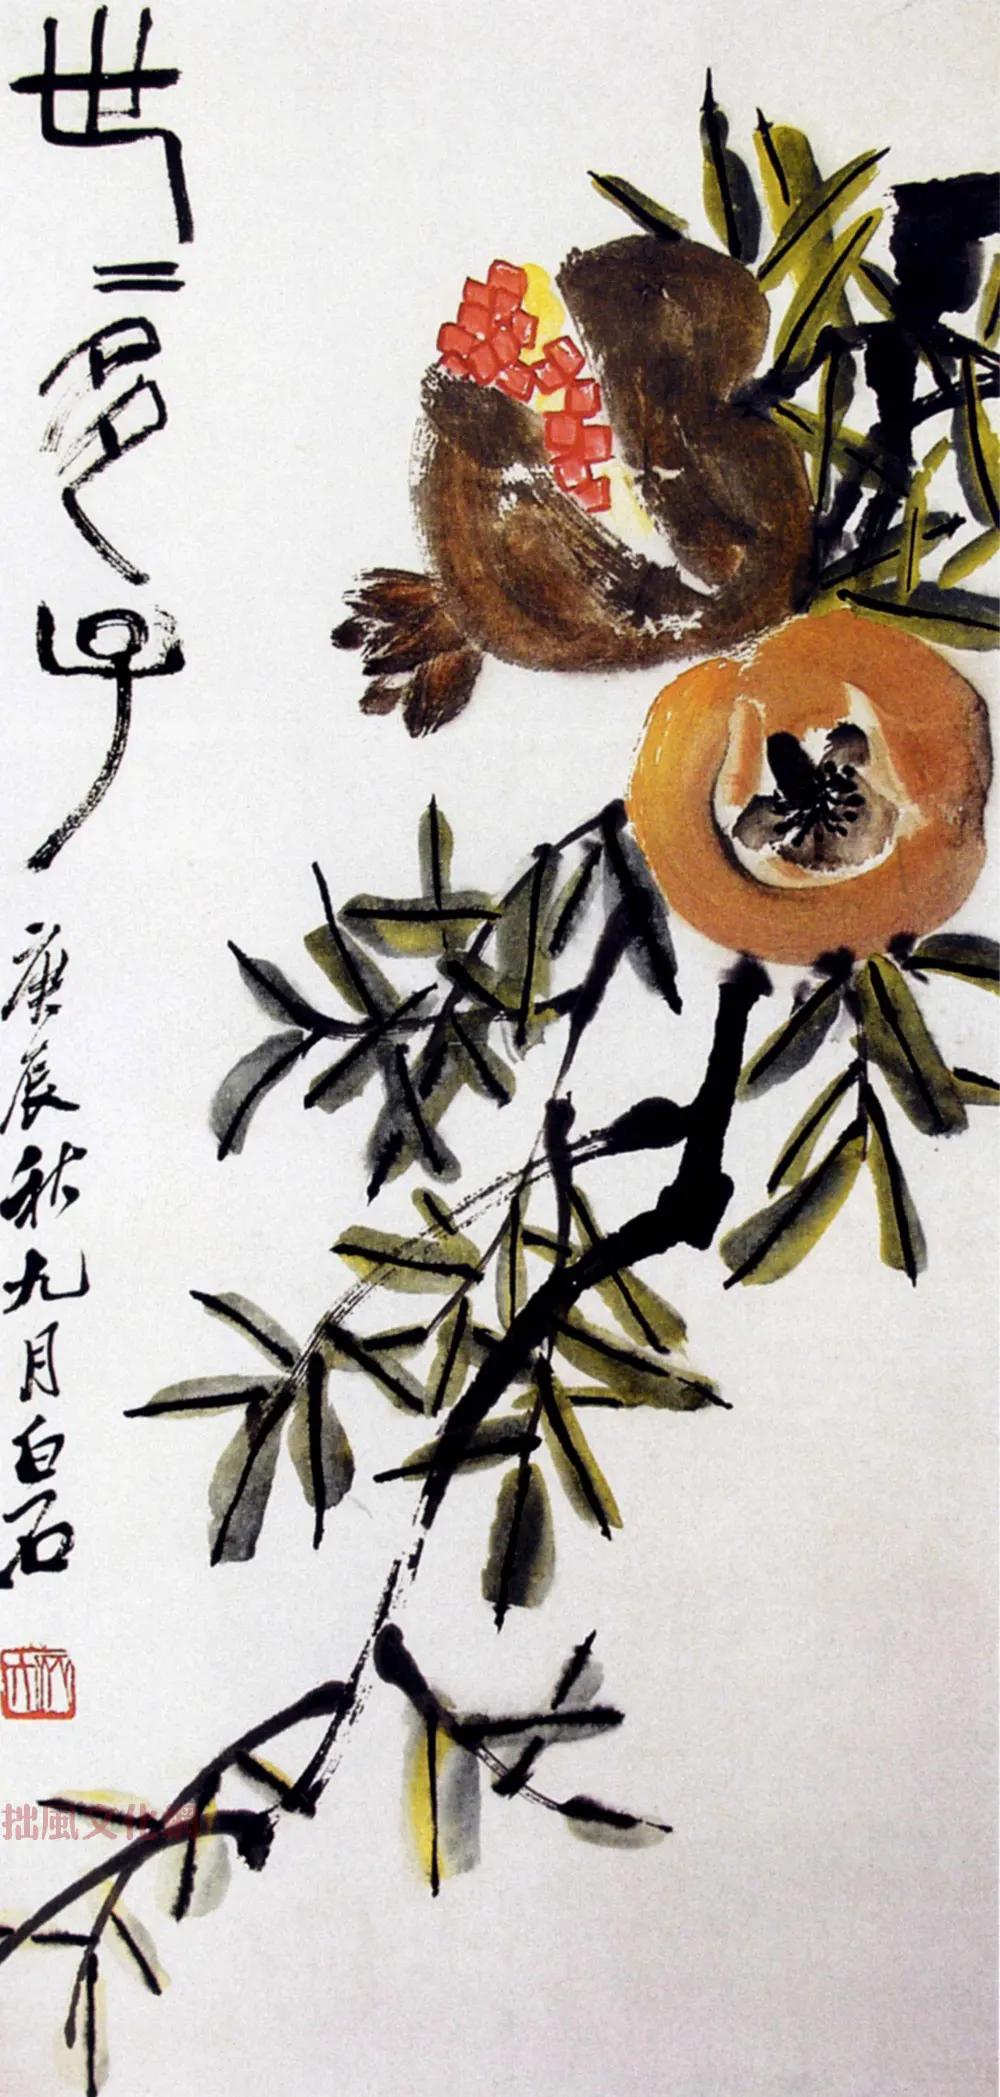 世二多子
庚辰秋九月白石
拙風文化網